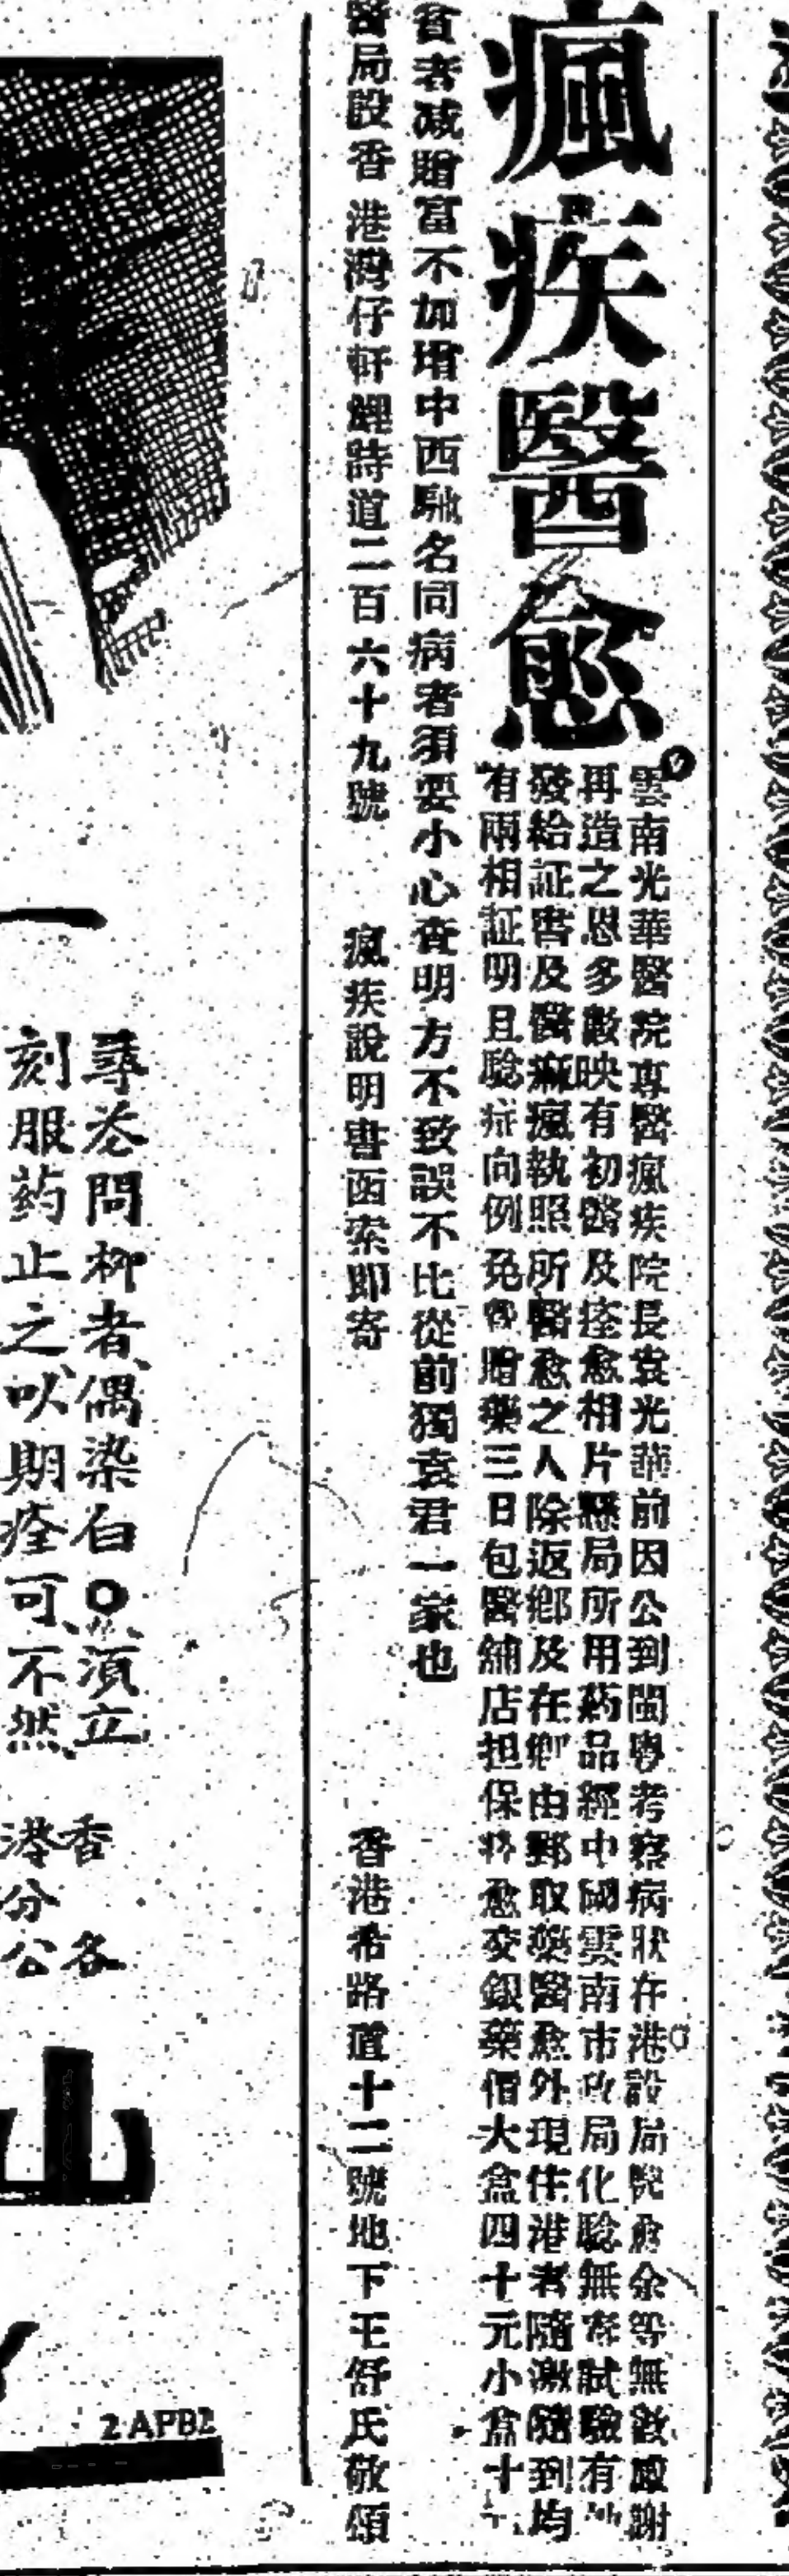 瘋疾醫愈
雲南光華醫院專醫瘋疾院長袁光華前因公到閩粵考察病狀在港設局醫愈余等無數感謝
再造之恩多數映有初醫及痊愈相片懸局所用葯品經中國雲南市政局化驗無害試驗有
發給証書及醫痳瘋執照所醫愈之人除返鄉及在鄉由郵取藥醫愈外現住港者隨激隨到均
有兩相証明且驗症向例免費贈藥三日包醫舖店担保將愈交銀藥價大盒四十元小盒十
貧者减贈富不加增中西馳名同病者須要小心查明方不致誤不比從前獨袁君一家也
醫局設香港灣仔軒鯉詩道二百六十九號 瘋疾說明書函索即寄 香港希路道十二號地下王舒氏敬頌
尋花問柳者偶染白〇須立
刻服药止之以期痊可不然
香
港
分
各
公
山
2 APB2